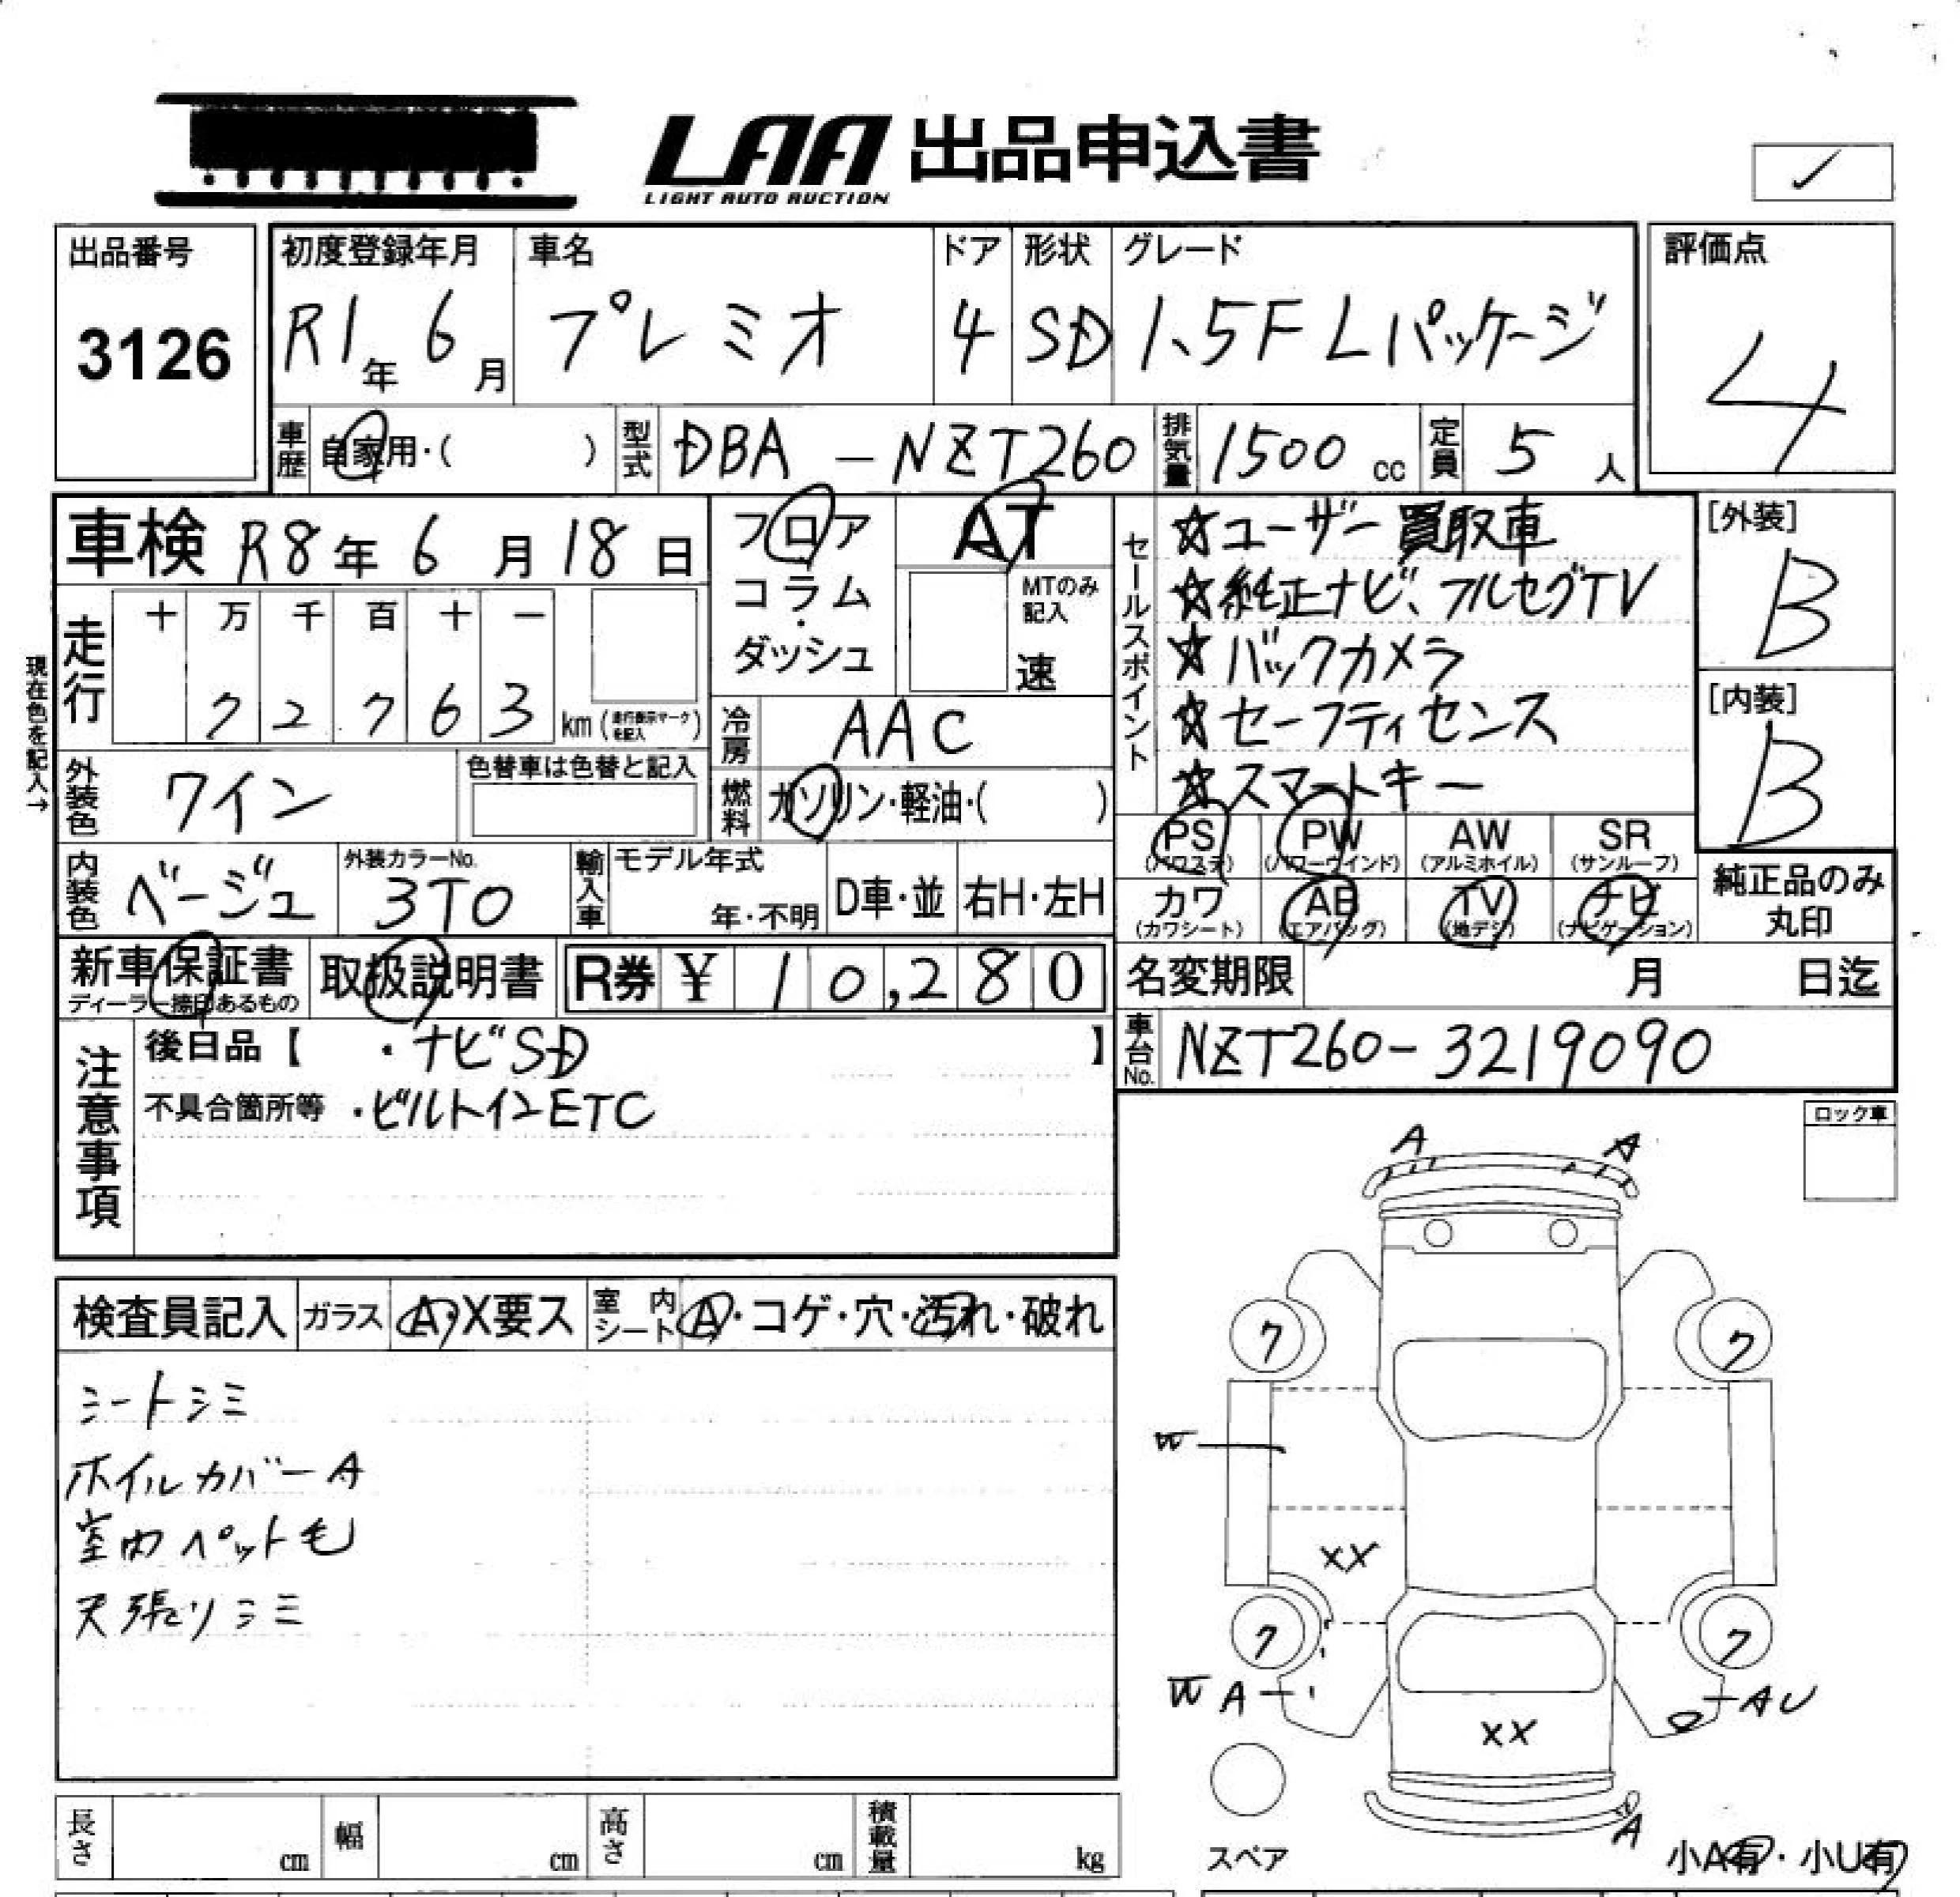 LAA 出品申込書
LIGHT AUTO AUCTION
出品番号
3126
初度登録年月
R1年 6月
車名
プレミオ
ドア
4
形状
SD
グレード
1.5F Lパッケージ
評価点
4
車歴 自家用・( )
型式 DBA-NZT260
排気量 1500 cc
定員 5 人
車検 R8年 6月 18日
フロア
・
コラム
・
ダッシュ
AT
MTのみ
記入
速
セールスポイント
☆ユーザー買取車
☆純正ナビ、フルセグTV
☆バックカメラ
☆セーフティセンス
☆スマートキー
[外装]
B
[内装]
B
現在色を記入→
走行
十 万 千 百 十 一
7 2 7 6 3 km (走行表示マークを記入)
冷房 AAC
外装色 ワイン
色替車は色替と記入
燃料 ガソリン・軽油・( )
PS (パワステ)
PW (パワーウインド)
AW (アルミホイル)
SR (サンルーフ)
カワ (カワシート)
AB (エアバッグ)
TV (地デジ)
ナビ (ナビゲーション)
純正品のみ
丸印
内装色 ベージュ
外装カラーNo.
3T0
輸入車
モデル年式
年・不明
D車・並
右H・左H
新車保証書
ディーラー捺印あるもの
取扱説明書
R券 ¥ 10,280
名変期限 月 日迄
注意事項
後日品【 ・ナビSD 】
不具合箇所等 ・ビルトインETC
車台No. NZT260-3219090
ロック車
検査員記入 ガラス A・X要ス 室内シート A・コゲ・穴・汚れ・破れ
シートシミ
ホイルカバーA
室内ペット毛
天張りシミ
A A
ク ク
W
XX
ク ク
W A
AU
XX
A
スペア
小A有・小U有
長さ cm
幅 cm
高さ cm
積載量 kg